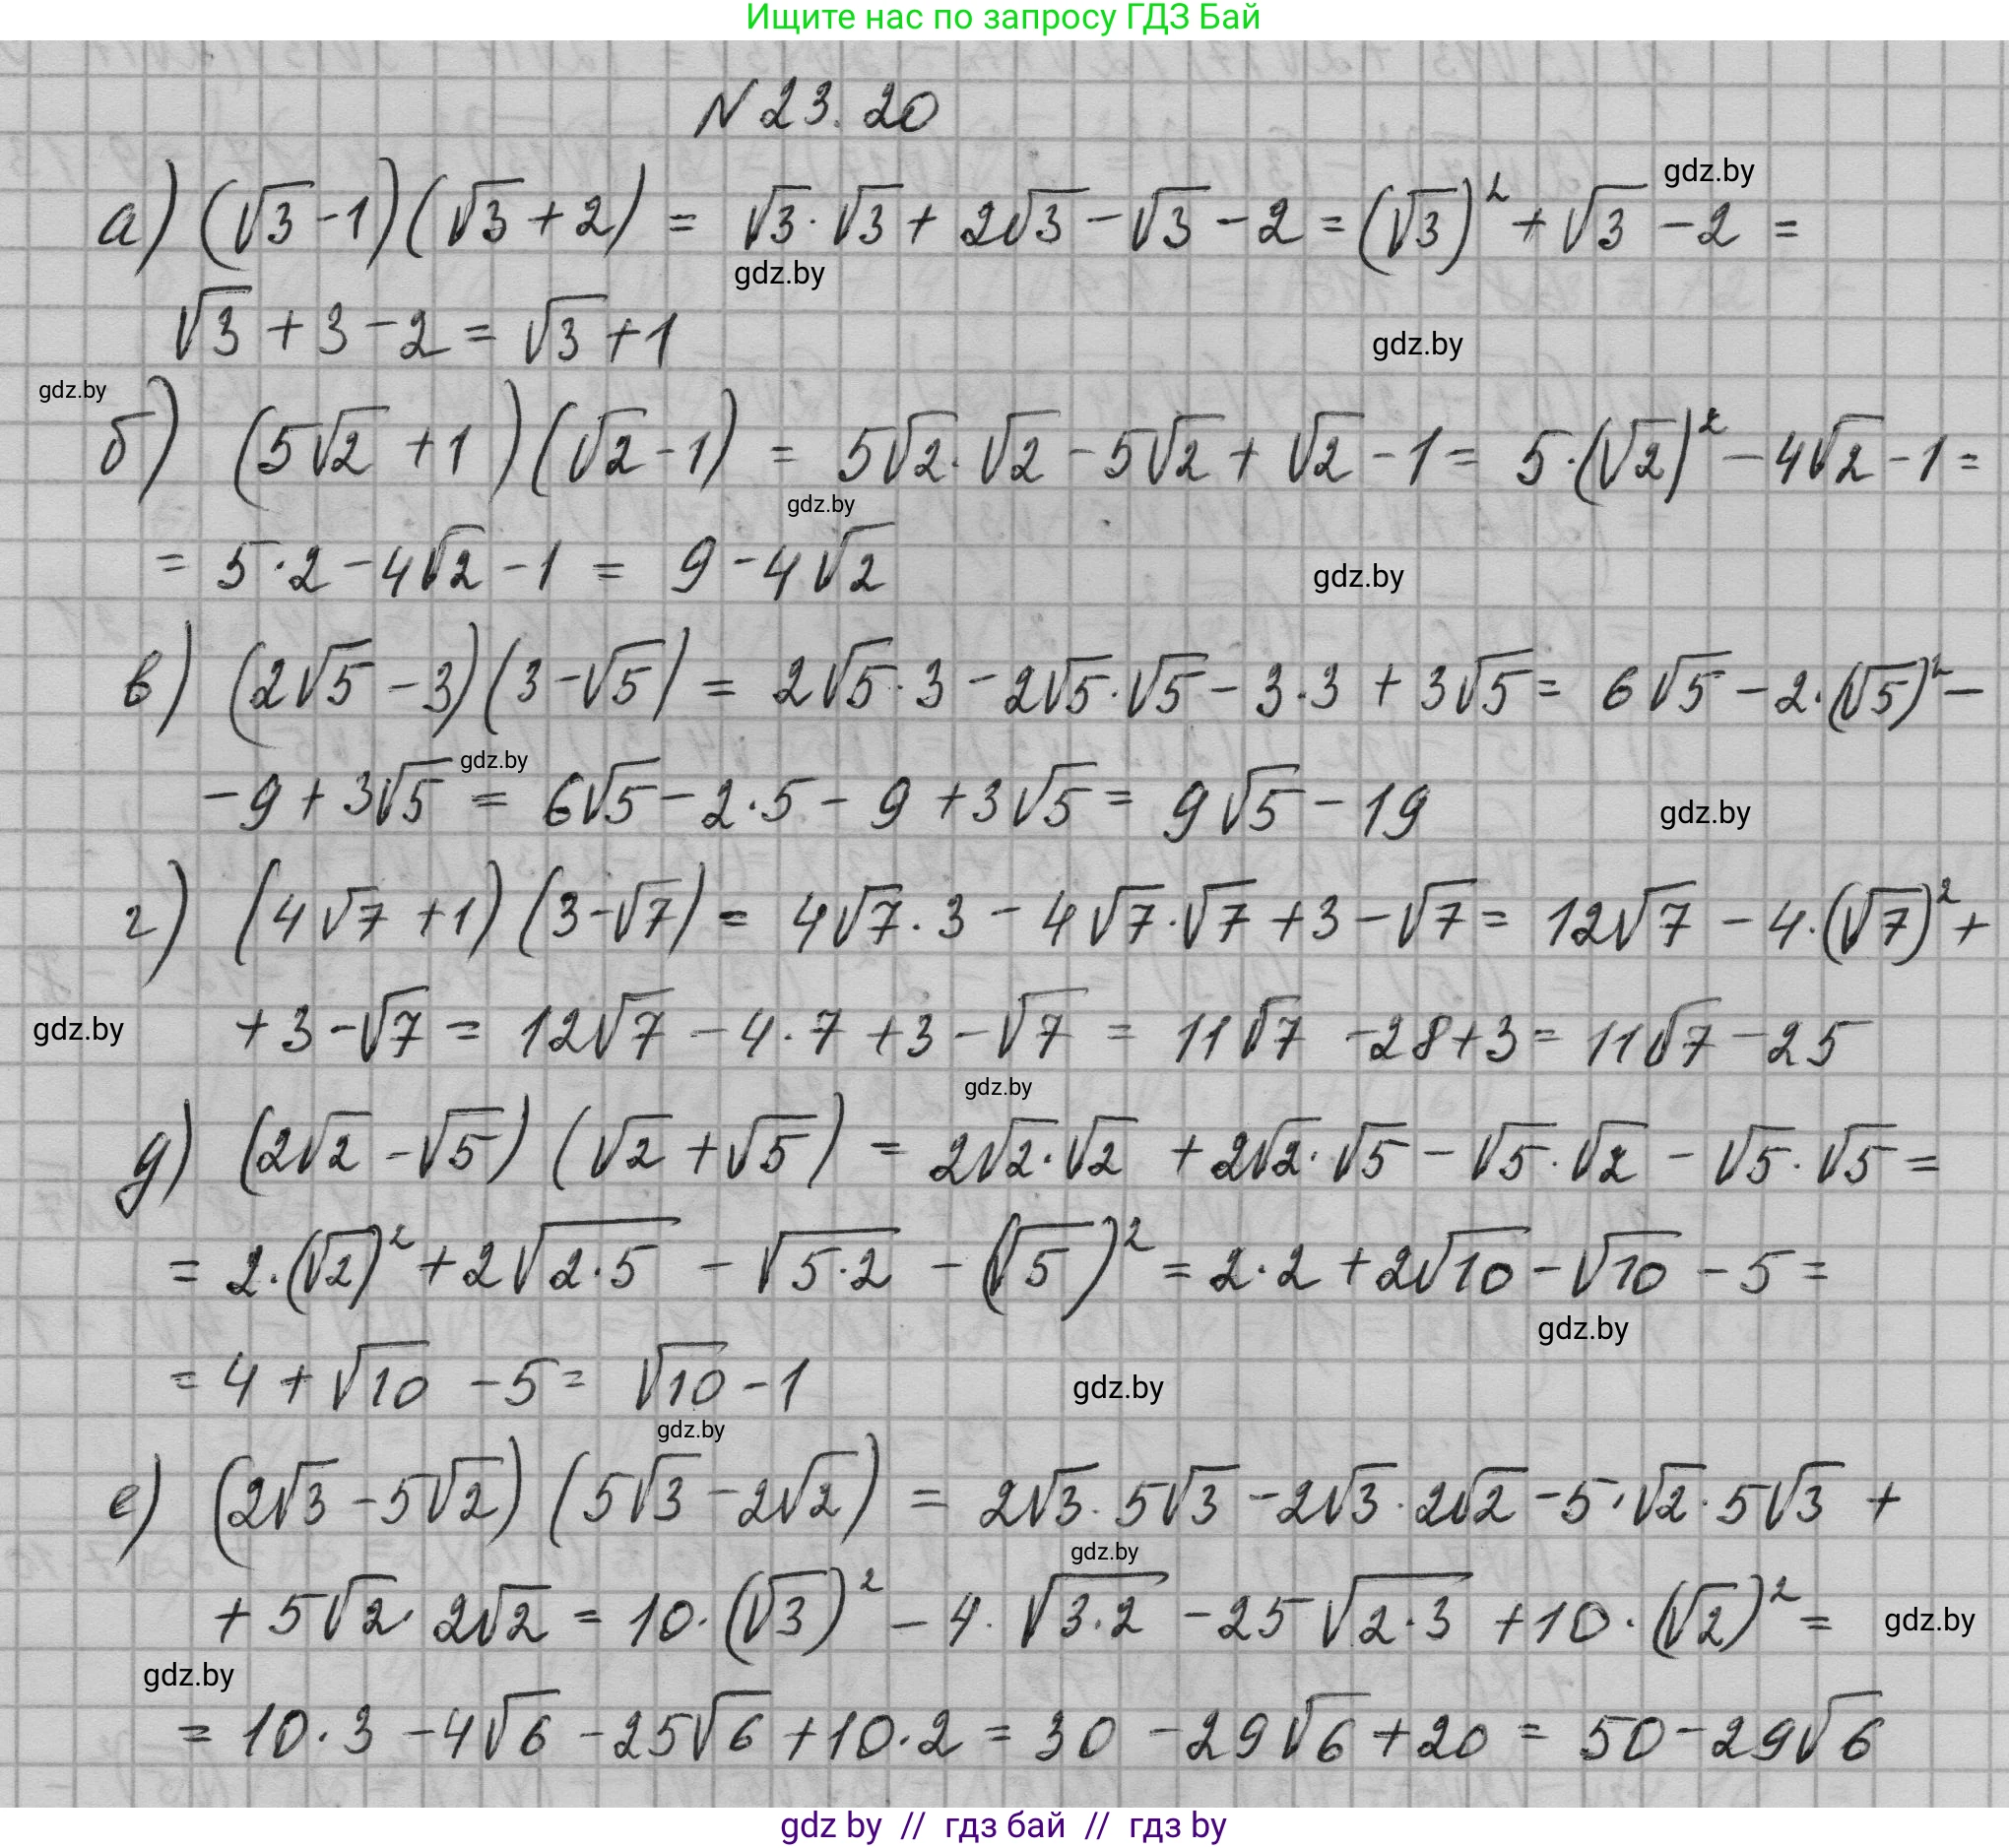 Ищите нас по запросу ГДЗ Бай
N 23.20
gdz.by
а) (√3 - 1)(√3 + 2) = √3 · √3 + 2√3 - √3 - 2 = (√3)² + √3 - 2 =
gdz.by
√3 + 3 - 2 = √3 + 1
gdz.by
gdz.by
б) (5√2 + 1)(√2 - 1) = 5√2 · √2 - 5√2 + √2 - 1 = 5 · (√2)² - 4√2 - 1 =
gdz.by
= 5 · 2 - 4√2 - 1 = 9 - 4√2
gdz.by
в) (2√5 - 3)(3 - √5) = 2√5 · 3 - 2√5 · √5 - 3 · 3 + 3√5 = 6√5 - 2 · (√5)² -
gdz.by
- 9 + 3√5 = 6√5 - 2 · 5 - 9 + 3√5 = 9√5 - 19
gdz.by
г) (4√7 + 1)(3 - √7) = 4√7 · 3 - 4√7 · √7 + 3 - √7 = 12√7 - 4 · (√7)² +
gdz.by
+ 3 - √7 = 12√7 - 4 · 7 + 3 - √7 = 11√7 - 28 + 3 = 11√7 - 25
gdz.by
д) (2√2 - √5)(√2 + √5) = 2√2 · √2 + 2√2 · √5 - √5 · √2 - √5 · √5 =
= 2 · (√2)² + 2√(2 · 5) - √(5 · 2) - (√5)² = 2 · 2 + 2√10 - √10 - 5 =
gdz.by
= 4 + √10 - 5 = √10 - 1
gdz.by
gdz.by
е) (2√3 - 5√2)(5√3 - 2√2) = 2√3 · 5√3 - 2√3 · 2√2 - 5 · √2 · 5√3 +
gdz.by
+ 5√2 · 2√2 = 10 · (√3)² - 4 · √(3 · 2) - 25√(2 · 3) + 10 · (√2)² =
gdz.by
gdz.by
= 10 · 3 - 4√6 - 25√6 + 10 · 2 = 30 - 29√6 + 20 = 50 - 29√6
gdz by // гдз бай // гдз by